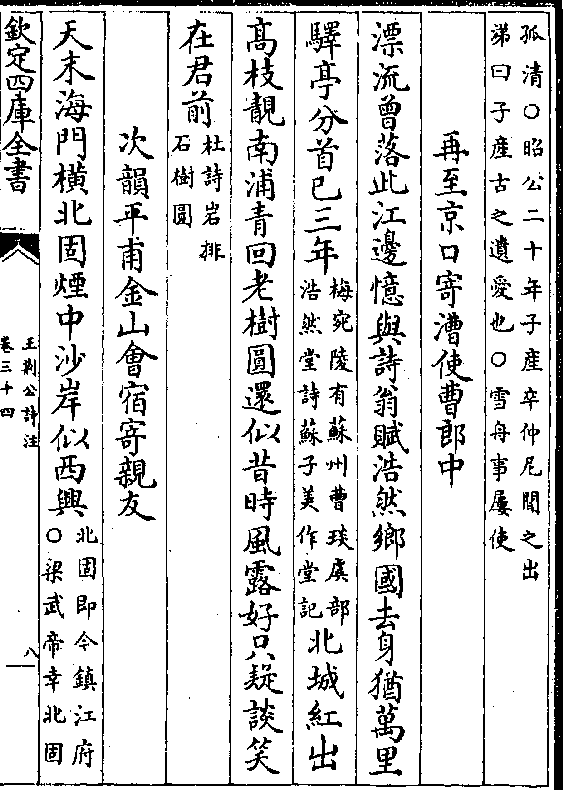 孤清○昭公二十年子產卒仲尼聞之出
涕曰子產古之遺愛也○雪舟事屢使
再至京口寄漕使曹郎中
漂流曾落此江邊憶與詩翁賦浩然鄉國去身猶萬里
驛亭分首已三年梅宛陵有蘇州曹琰虞部
浩然堂詩蘇子美作堂記北城紅出
高枝靚南浦青回老樹圓還似昔時風露好只疑談笑
在君前杜詩岩排
石樹圓
次韻平甫金山會宿寄親友
天末海門橫北固煙中沙岸似西興北固即今鎮江府
○梁武帝幸北固
欽定四庫全書
王荆公詩注
卷三十四
八